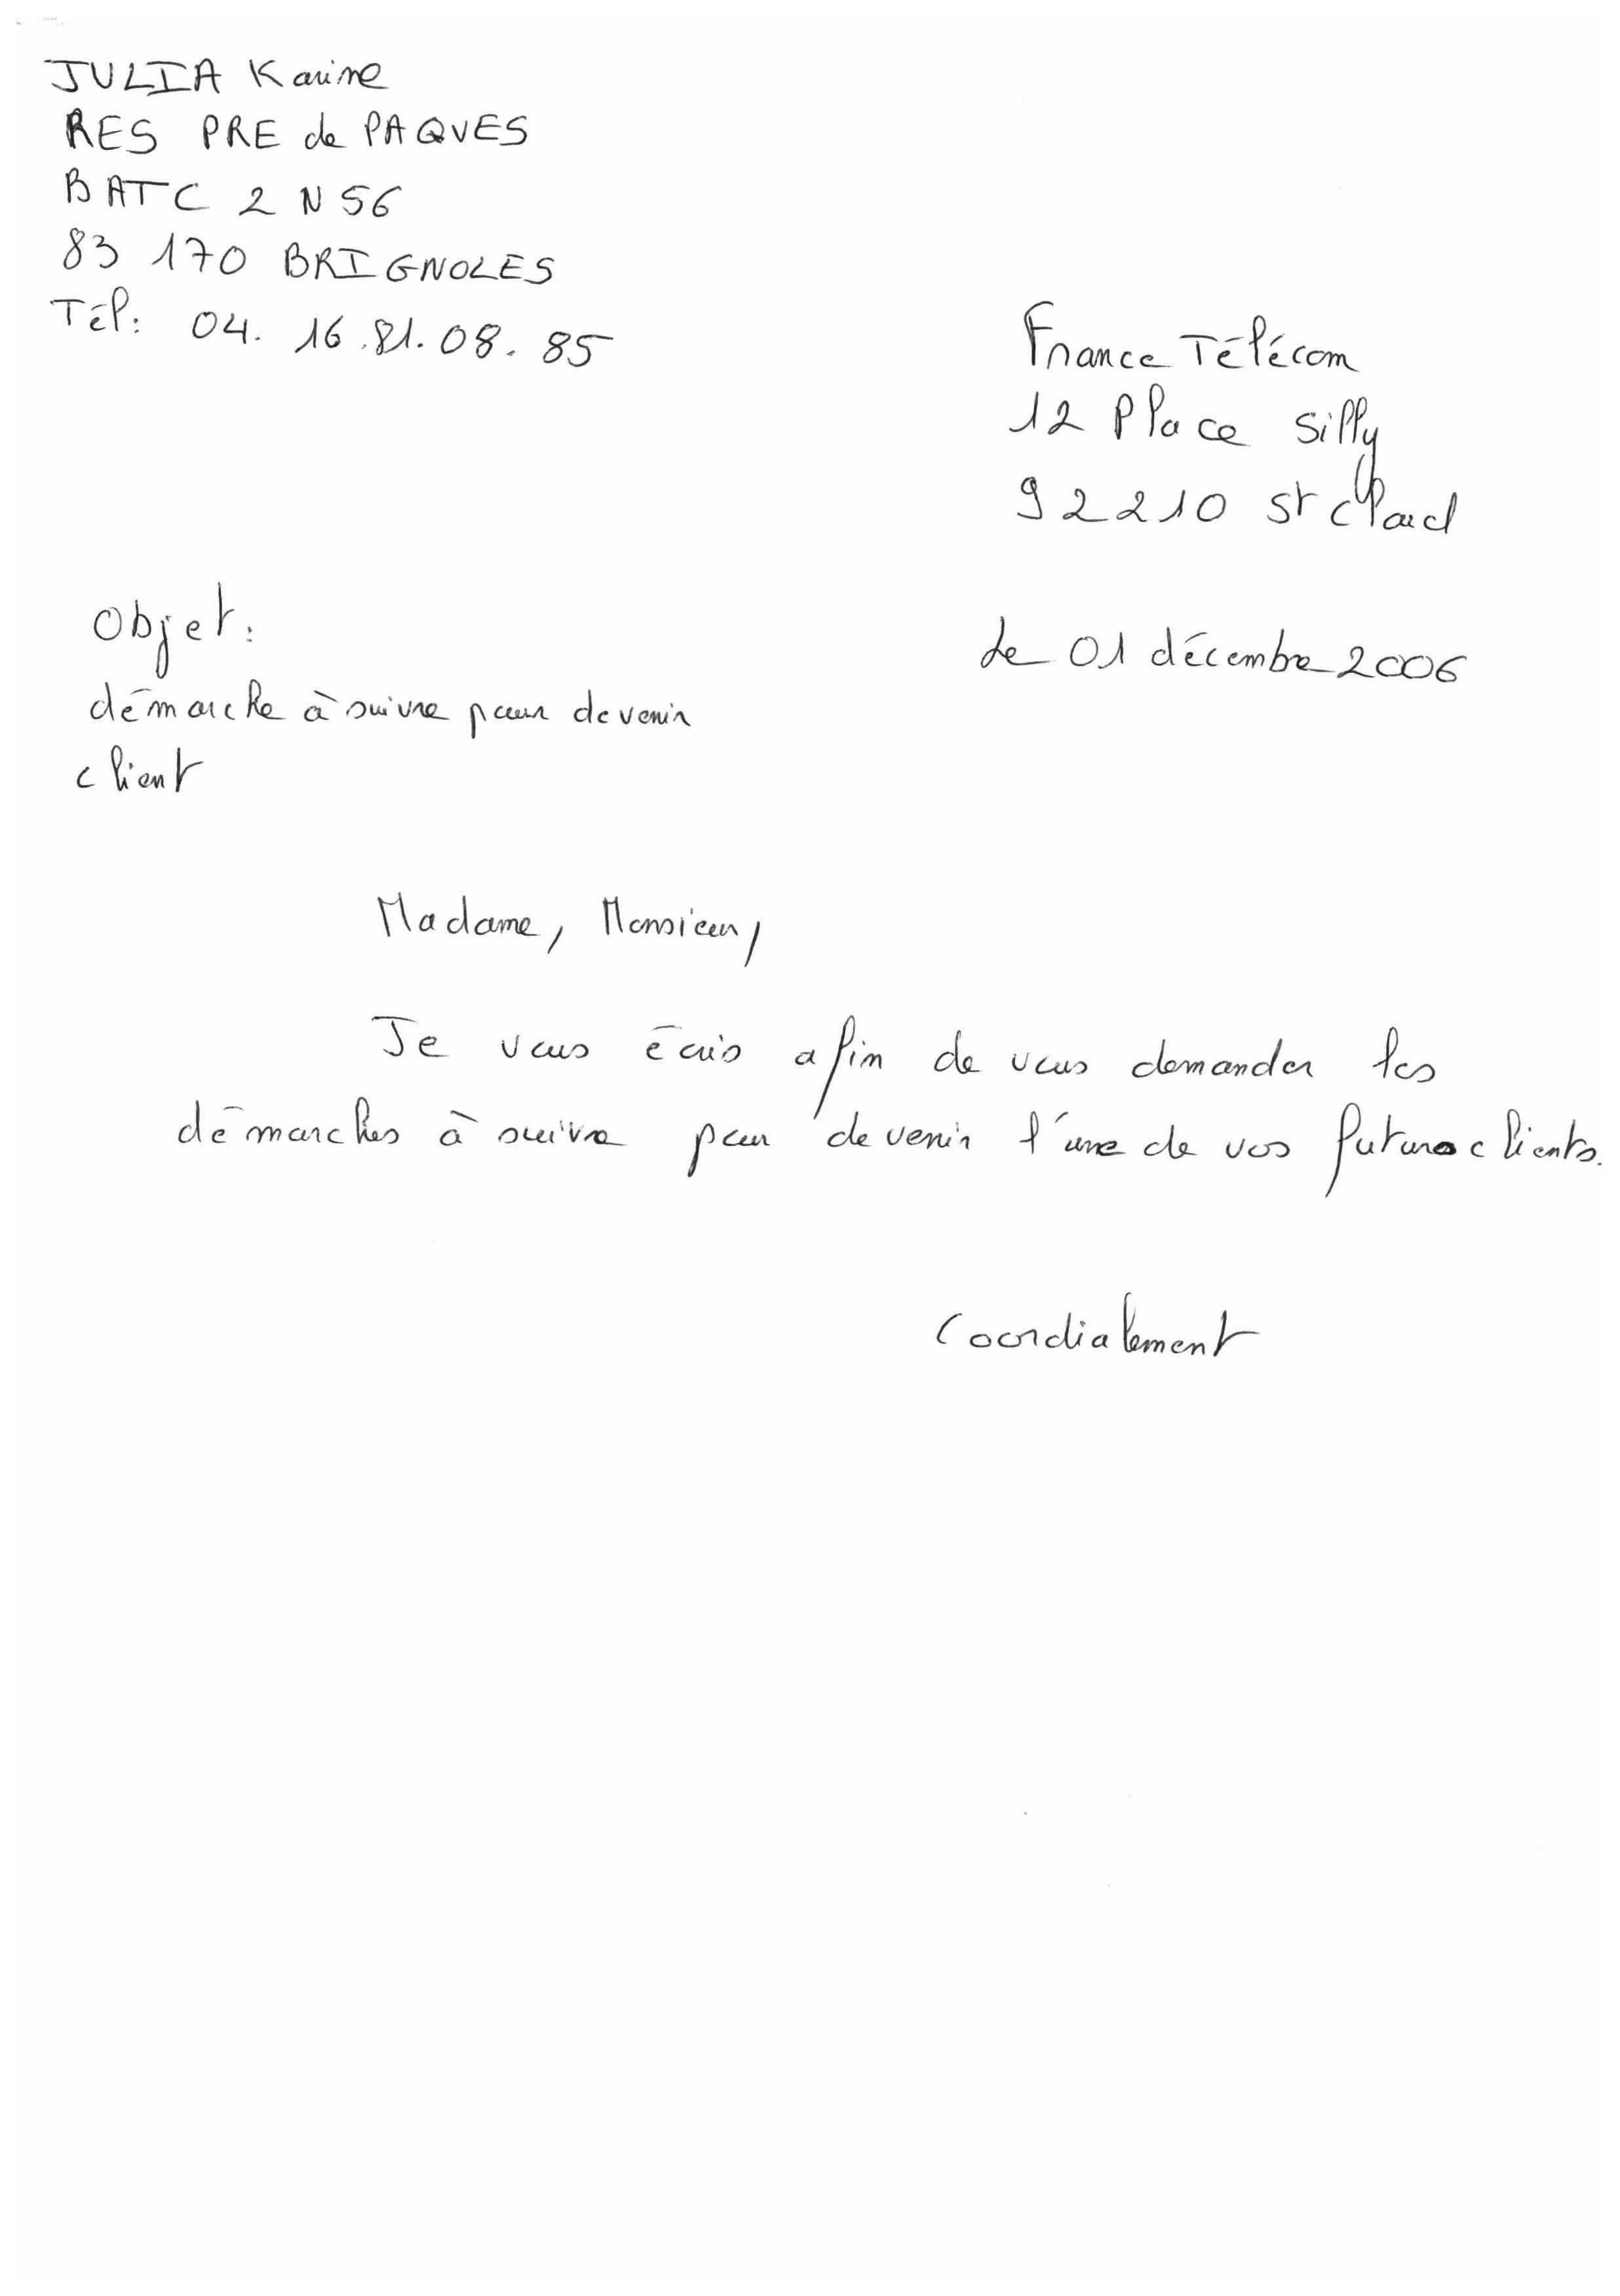 JULIA Karine
RES PRE de PAQUES
BAT C 2 N 56
83 170 BRIGNOLES
Tél: 04. 16.81.08.85
France Télécom
12 Place Silly
92210 St Cloud
Objet:
Le 01 décembre 2006
démarche à suivre pour devenir
client
Madame, Monsieur,
Je vous écris afin de vous demander les
démarches à suivre pour devenir l'une de vos futurs clients.
Coordialement